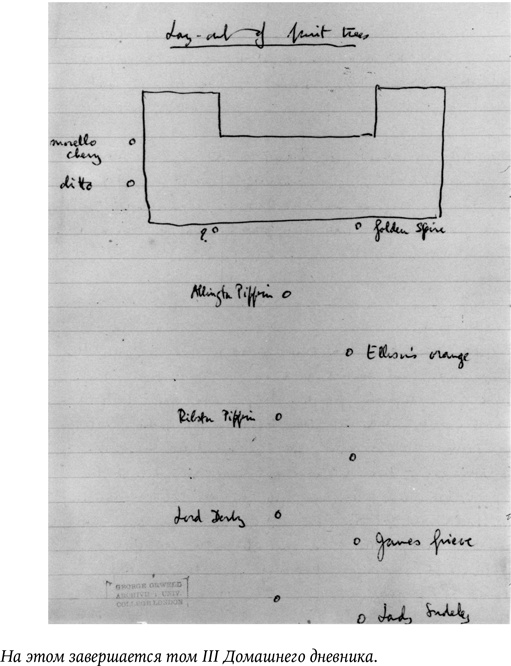 Lay-out of fruit trees
morello
cherry
ditto
?
Golden Spire
Allington Pippin
Ellison's orange
Ribston Pippin
Lord Derby
James Grieve
Lady Sudeley
GEORGE ORWELL
ARCHIVE
COLLEGE LONDON
На этом завершается том III Домашнего дневника.